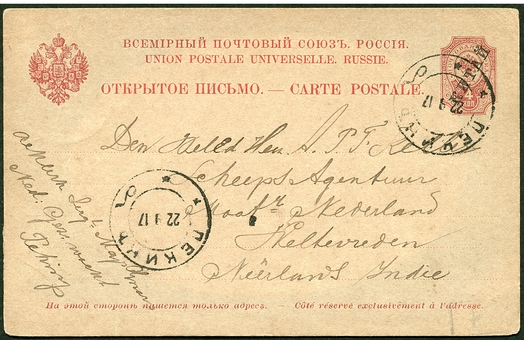 ВСЕМІРНЫЙ ПОЧТОВЫЙ СОЮЗЪ. РОССІЯ.
UNION POSTALE UNIVERSELLE. RUSSIE.
ОТКРЫТОЕ ПИСЬМО. — CARTE POSTALE.
4
КОП
КИТАЙ
22 1 17
ПЕКИНЪ
Den Heer A. P. F.
Scheeps Agentuur
Maatr Nederland
Weltevreden
Neêrlands Indie
22 1 17
ПЕКИНЪ
Ned. Gez.
Peking
На этой сторонѣ пишется только адресъ. — Côté réservé exclusivement à l'adresse.